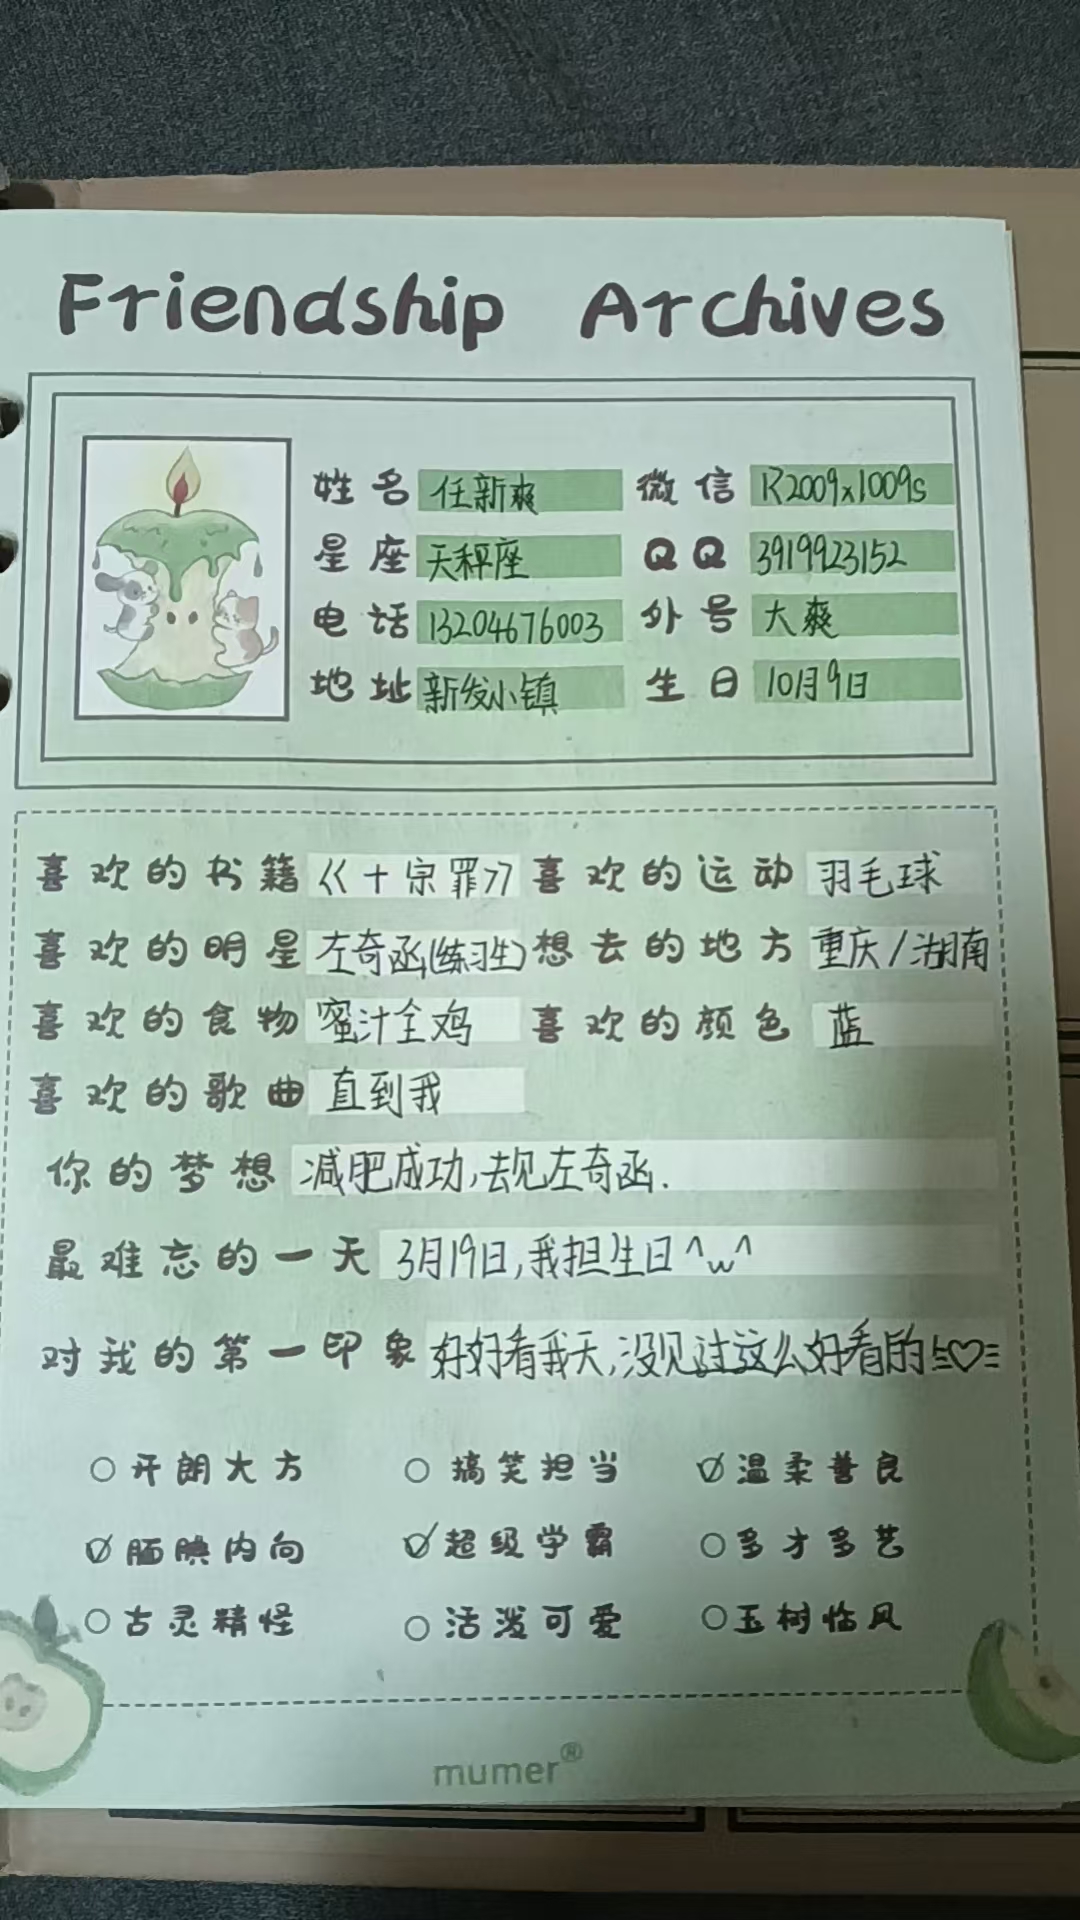 Friendship Archives
姓名 任新爽 微信 R2009x1009s
星座 天秤座 QQ 3919923152
电话 13204676003 外号 大爽
地址 新发小镇 生日 10月9日
喜欢的书籍 《十宗罪》 喜欢的运动 羽毛球
喜欢的明星 左奇函(练习生) 想去的地方 重庆/湖南
喜欢的食物 蜜汁全鸡 喜欢的颜色 蓝
喜欢的歌曲 直到我
你的梦想 减肥成功,去见左奇函.
最难忘的一天 3月19日,我担生日^w^
对我的第一印象 好好看我天,没见过这么好看的
开朗大方 搞笑担当 温柔善良
腼腆内向 超级学霸 多才多艺
古灵精怪 活泼可爱 玉树临风
mumer®